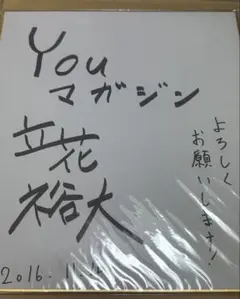 You
マガジン
立花
裕大
よろしく
お願いします!
2016.11.